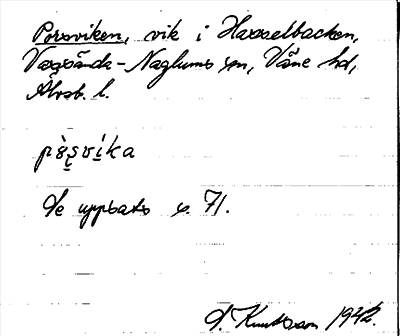 Porsviken, vik i Hasselbacken,
Vassända-Naglums sn, Väne hd,
Älvsb. l.
pò̀ṣvíka
Se uppsats s. 71.
S. Knutsson 1942.